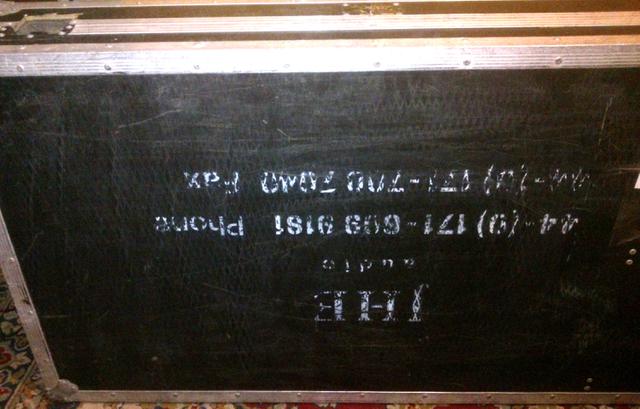 JHE
audio
44-(0) 171-609 9181 Phone
44-(0) 171-700 7040 Fax